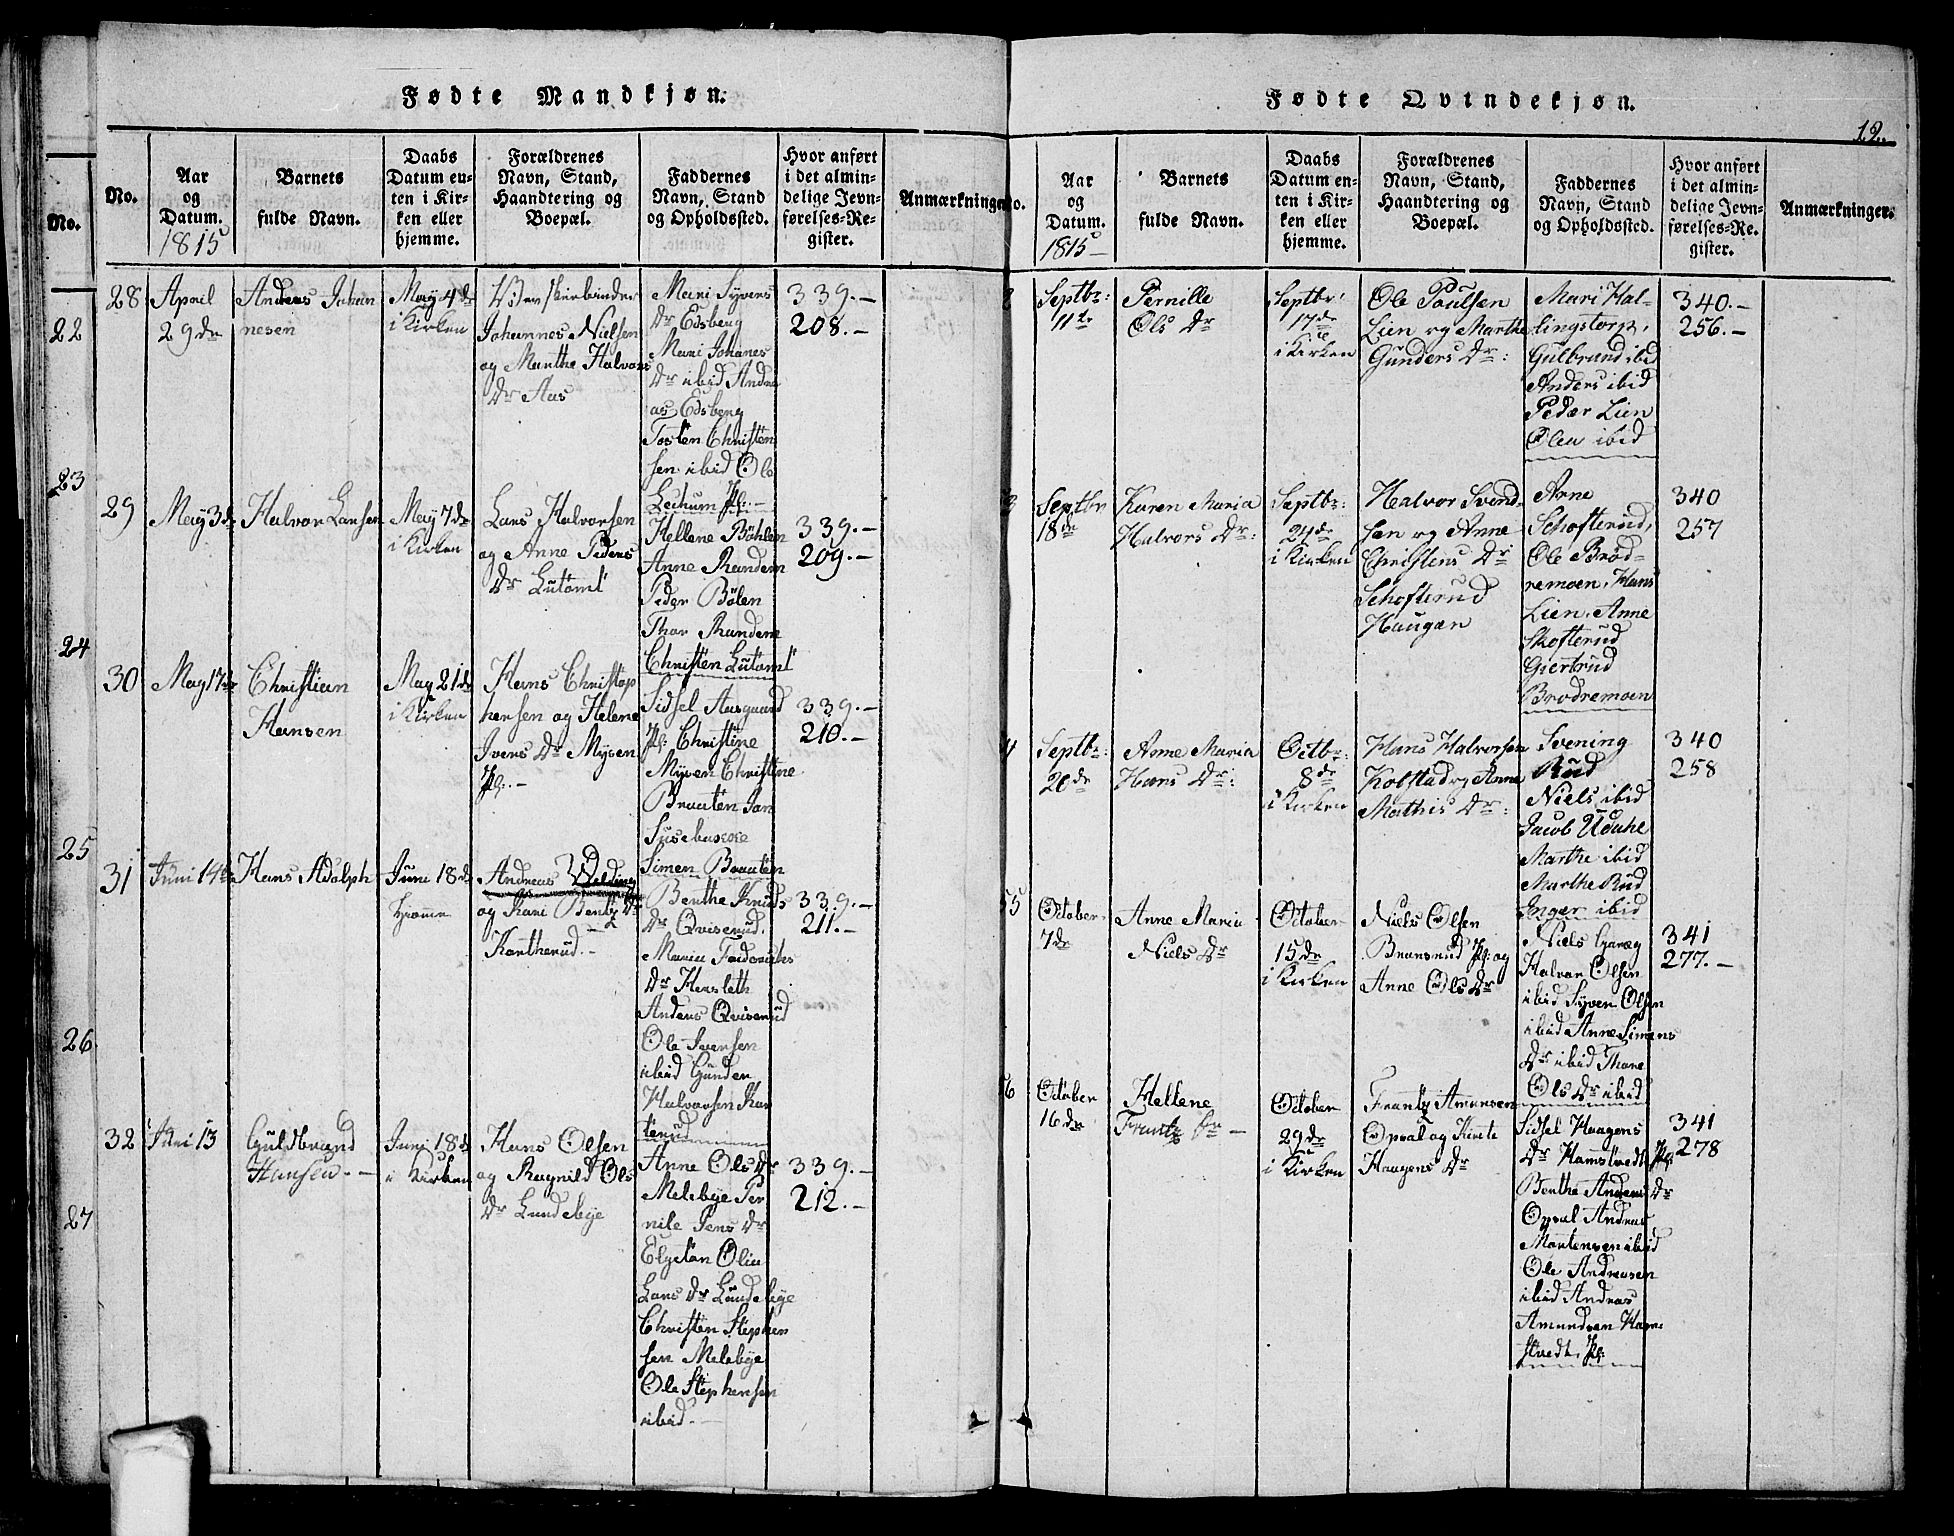 Fødte Mandkjøn.
No.
Aar
og
Datum.
1815
Barnets
fulde Navn.
Daabs
Datum en-
ten i Kir-
ken eller
hjemme.
Forældrenes
Navn, Stand,
Haandtering og
Boepæl.
Faddernes
Navn, Stand
og Opholdssted.
Hvor anført
i det almin-
delige Jevn-
førelses-Re-
gister.
Anmærkninger
No.
22
23
24
25
26
27
28
April
29de
Anders Johan
nesen
May 4de
i Kirken
Johannes Nielsen
og Marthe Halvors
Dr Aas
Mari Syvers
Dr Edsberg
Mari Johanes
Dr ibid Andre
as Edsberg
Tosten Christen
sen ibid Ole
Lechum Pl:
339.-
208.-
29
May 3de
Halvor Larsen
May 7de
i Kirken
Lars Halvorsen
og Anne Peders
Dr Lutomt
Hellene Böhlen
Anne Randem
Peder Bölen
Thor Randem
Christen Lutomt
339.-
209.-
30
May 17de
Christian
Hansen
May 21de
i Kirken
Hans Christop
hersen og Helene
Ivers Dr Mysen
Pl:.-
Sidsel Aasgaard
Pl: Christine
Mysen Christine
Braaten Jan
Susebakke
Simen Braaten
339.-
210.-
31
Juni 14de
Hans Adolph
Juni 18de
hjemme
Andreas Welding
og Kari Bentz Dr
Kantherud.-
Benthe Knuds
Dr Qviserud.
Maria Fridrichs
Dr Hersleth
Anders Qviserud
Ole Iversen
ibid Gunder
Halvorsen Kan
terud
339.-
211.-
32
Juni 13
Guldbrand
Hansen.-
Juni 18de
i Kirken
Hans Olsen
og Ragnild Ols
Dr Lundebye
Anne Ols Dr
Melebye Per
nile Jens Dr
Elgetan Olia
Lars Dr Lundebye
Christen Stephen
sen Melebye
Ole Stephensen
ibid.-
339.-
212.-
Fødte Qvindekjøn.
12.
No.
Aar
og
Datum.
1815-
Barnets
fulde Navn.
Daabs
Datum en-
ten i Kir-
ken eller
hjemme.
Forældrenes
Navn, Stand,
Haandtering og
Boepæl.
Faddernes
Navn, Stand
og Opholdssted.
Hvor anført
i det almin-
delige Jevn-
førelses-Re-
gister.
Anmærkninger.
Septbr:
11te
Pernille
Ols Dr
Septbr:
17de
i Kirken
Ole Poulsen
Lien og Marthe
Gunders Dr:
Mari Hal-
lingstorp,
Gulbrand ibid
Anders ibid
Peder Lien
Olea ibid
340.-
256.-
3
Septbr
18de
Karen Maria
Halvors Dr:
Septbr:
24de
i Kirken
Halvor Svend-
sen og Anne
Christens Dr
Schofterud
Haugen
Arne
Schofterud,
Ole Brod-
remoen, Hans
Lien, Anne
Skofterud
Giertrud
Brodremoen
340
257
4
Septbr:
20de
Anne Maria
Hans Dr:
Octbr:
8de
i Kirken
Hans Halvorsen
Kolstad og Anne
Mathis Dr:
Svening
Rud
Niels ibid
Jacob Udahe
Marthe ibid
Marthe Rud
Inger ibid
340
258
55
October
7de
Anne Maria
Niels Dr
October
15de
i Kirken
Niels Olsen
Bransrud Pl: og
Anne Ols Dr
Niels Garæg
Halvor Olsen
ibid Syver Olsen
ibid Anne Simens
Dr ibid Thore
Ols Dr ibid
341
277.-
6
October
16de
Hellene
Frantz Dr -
October
29de
i Kirken
Frantz Amunsen
Opsal og Kirste
Haagens Dr
Sidsel Haagens
Dr Hamstvedt Pl:
Benthe Anders Dr
Opsal Andreas
Mortensen ibid
Ole Andreasen
ibid Andreas
Amundsen Ham-
stvedt, Pl:
341
278